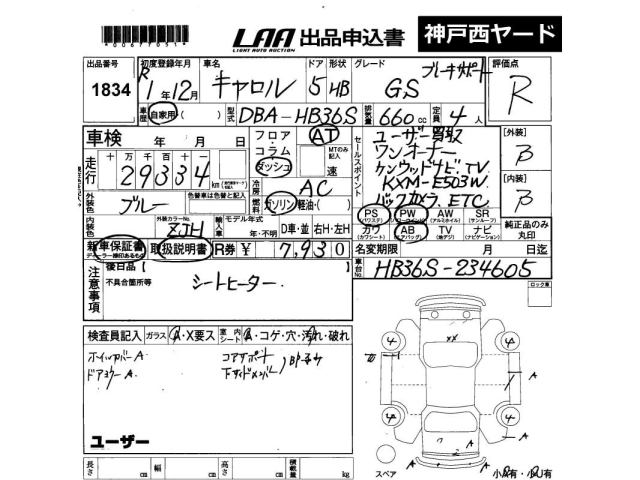 LAA 出品申込書 神戸西ヤード
LIGHT AUTO AUCTION
*00677051*
出品番号 初度登録年月 車名 ドア 形状 グレード ブレーキサポート 評価点
1834 R1年12月 キャロル 5 HB GS R
車歴 自家用・( ) 型式 DBA-HB36S 排気量 660cc 定員 4人
車検 年 月 日
フロア・コラム・ダッシュ AT
MTのみ記入 速
セールスポイント
ユーザー買取
ワンオーナー
ケンウッドナビ.TV
KXM-E503W
バックカメラ.ETC
[外装] B
[内装] B
走行 十万千百十
29334 km
冷房 AC
外装色 ブルー 色替車は色替と記入
燃料 ガソリン・軽油・( )
内装色 外装カラーNo. ZJH 輸入車 モデル年式 年・不明 D車・並 右H・左H
PS (パワステ) PW (パワーウインド) AW (アルミホイル) SR (サンルーフ)
カワ (カワシート) AB (エアバッグ) TV (地デジ) ナビ (ナビゲーション)
純正品のみ丸印
新車保証書 取扱説明書 R券 ¥ 7,930
名変期限 月 日迄
車台No. HB36S-234605
注意事項 後日品【 】
不具合箇所等
シートヒーター.
ロック車
検査員記入 ガラス A・X要ス 室内シート A・コゲ・穴・汚れ・破れ
ホイルカバーA
ドアミラーA
コアサポート
下サイドメンバー
ユーザー
長さ cm 幅 cm 高さ cm 積載量 kg
XX
4 4
4 4
A
A
A
2
A
スペア 小A有・小U有